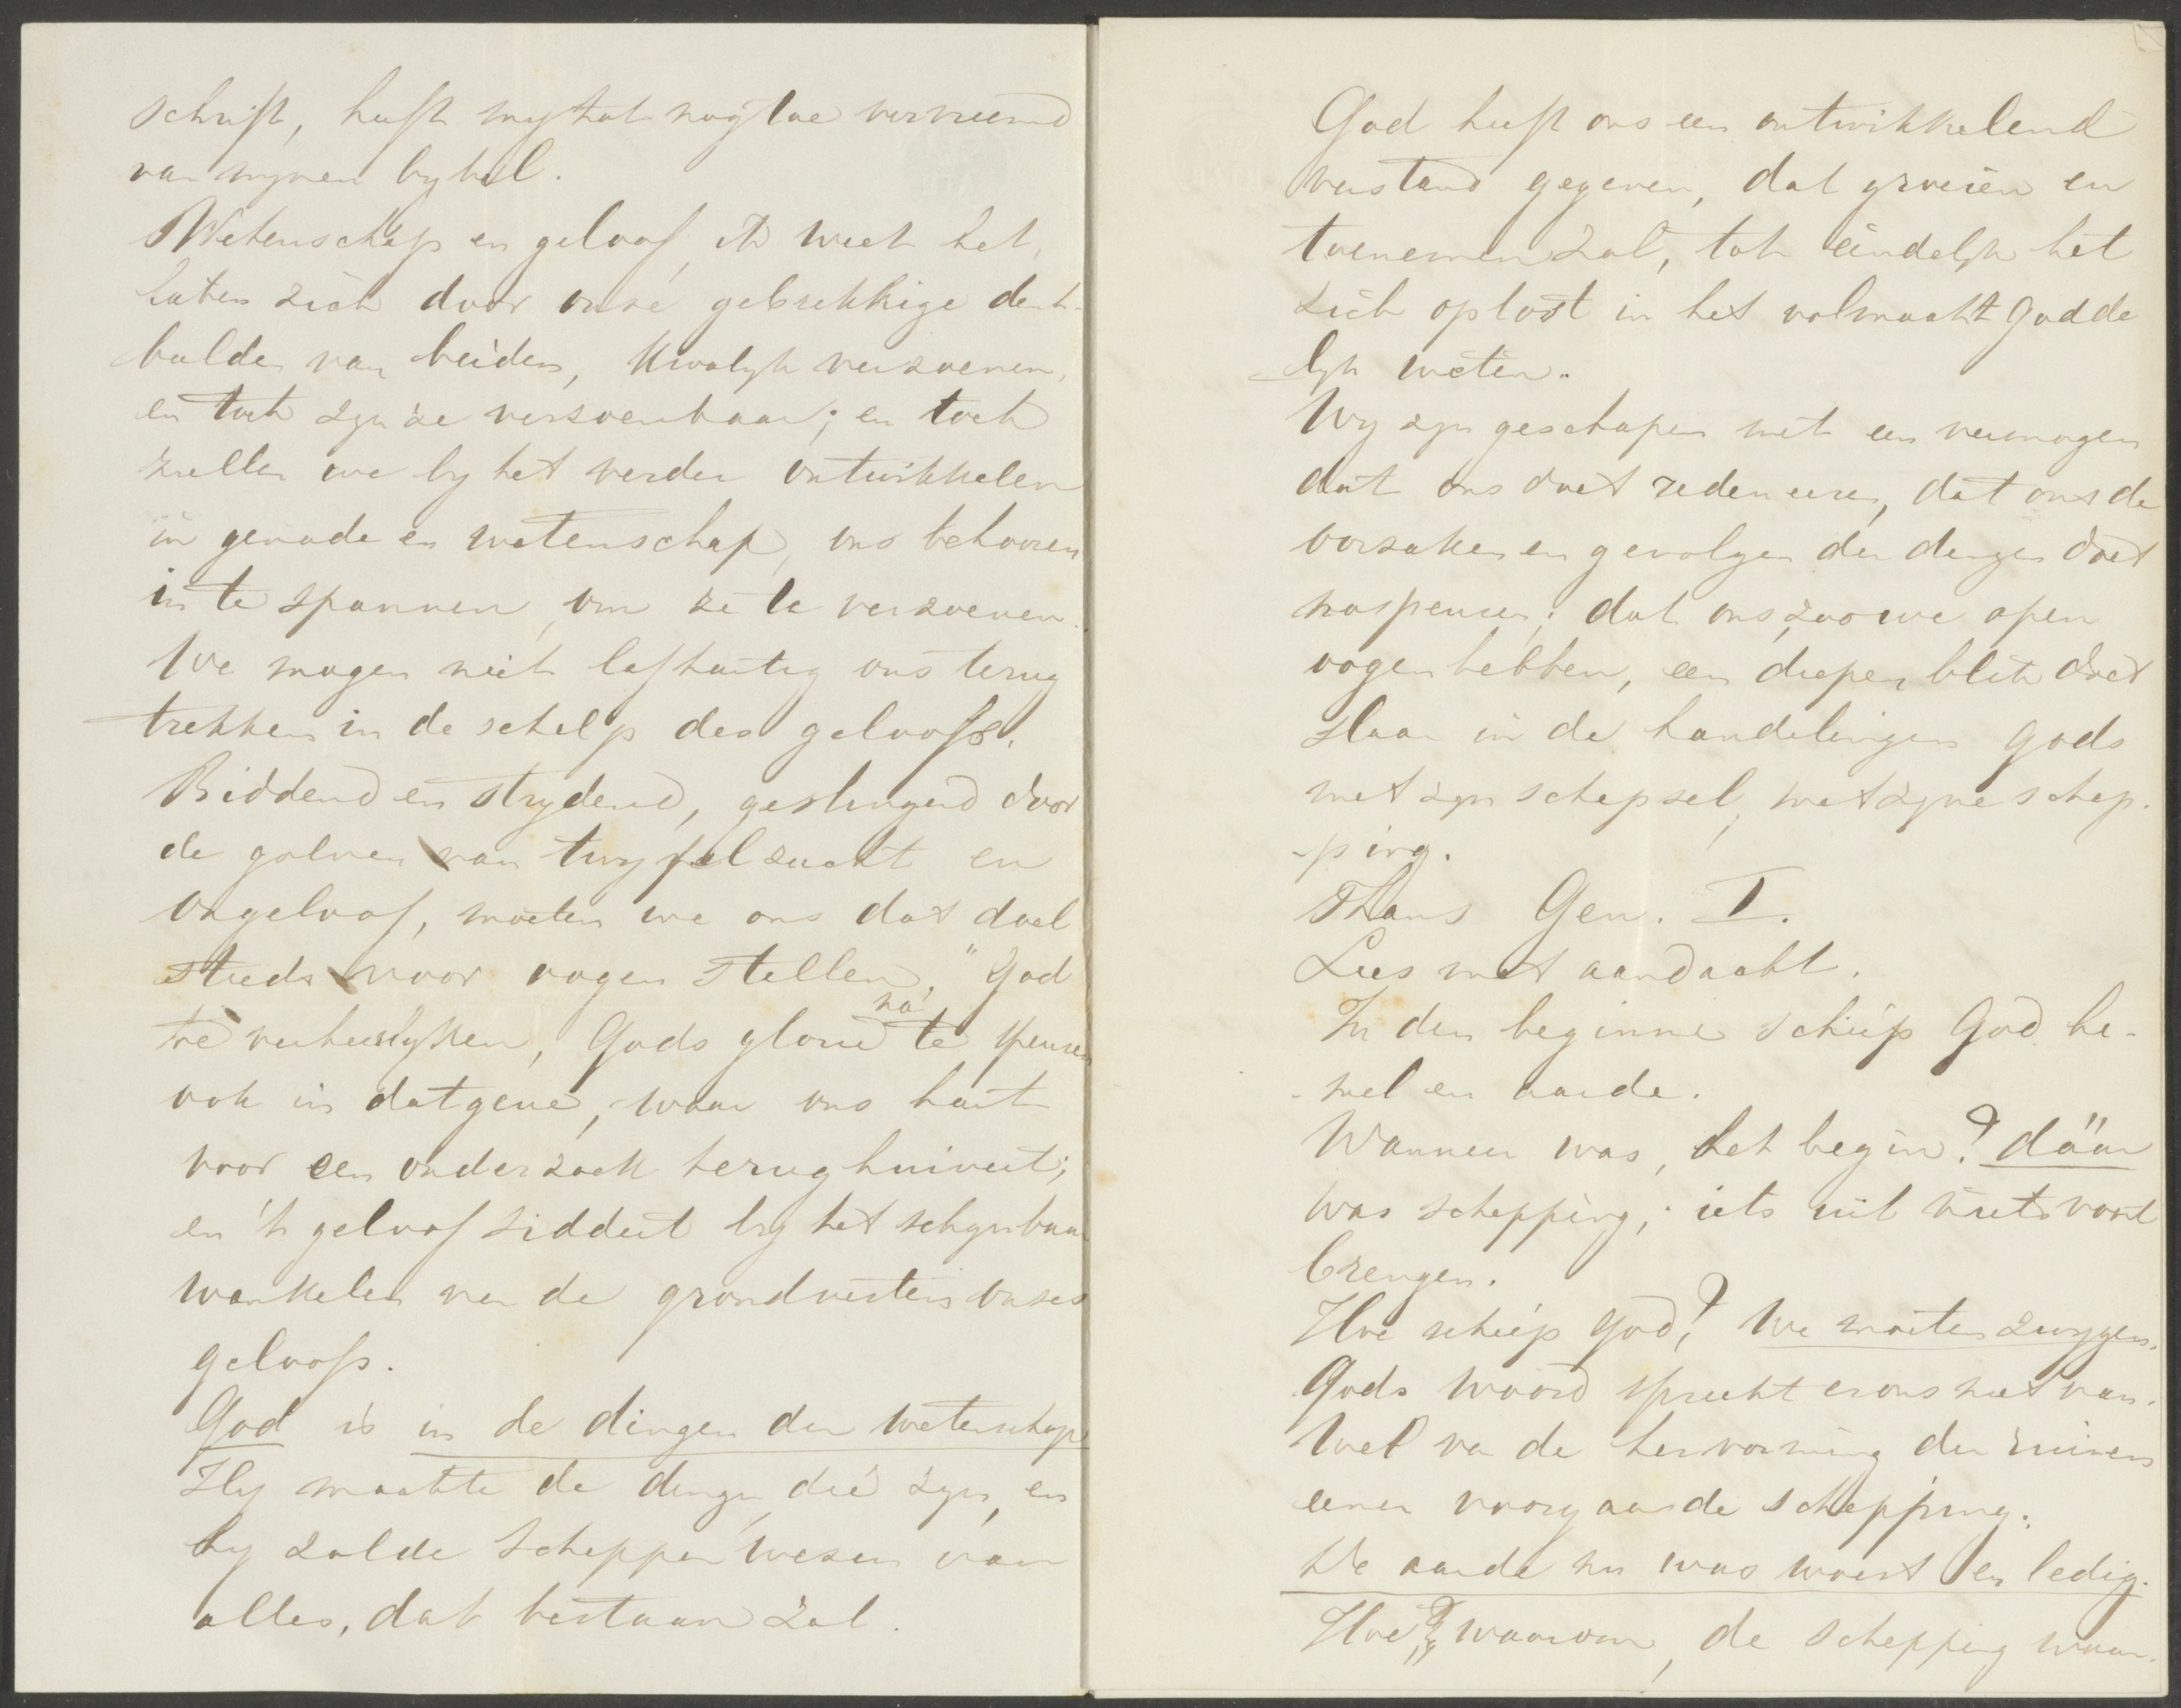 schrift, heeft my tot nog toe vervreemd
van mynen bybel.
Wetenschap en geloof, ik weet het,
laten zich door onze gebrekkige denk-
beelden van beiden, kwalyk verzoenen,
en toch zyn ze verzoenbaar; en toch
zullen we by het verder ontwikkelen
in genade en wetenschap, ons behooren
in te spannen, om ze te verzoenen.
We mogen niet lafhartig ons terug
trekken in de schelp des geloofs.
Biddend en strydend, geslingerd door
de golven van twyfelzucht en
ongeloof, moeten we ons dat doel
steeds voor oogen stellen, "God
te verheerlyken, Gods glorie ná te speuren
ook in datgene, waar ons hart
voor een onderzoek terughuivert;
en 't geloof siddert by het schynbaar
wankelen van de grondvesten onzes
geloofs.
God is in de dingen der wetenschap
Hy maakte de dingen, die zyn, en
hy zal de Schepper wezen van
alles, dat bestaan zal.
God heeft ons een ontwikkelend
verstand gegeven, dat groeien en
toenemen zal, tot eindelyk het
zich oplost in het volmaakt godde
-lyk weten.
Wy zyn geschapen met een vermogen
dat ons doet redeneeren, dat ons de
oorzaken en gevolgen der dingen doet
naspeuren; dat ons, zoo we open
oogen hebben, een diepen blik doet
slaan in de handelingen Gods
met zyn schepsel, met zyne schep-
-ping.
Thans Gen. I.
Lees met aandacht.
In den beginne schiep God he-
-mel en aarde.
Wanneer was, het begin? däär
was schepping; iets uit niets voort
brengen.
Hoe schiep God? We moeten zwygen.
Gods woord spreekt er ons niet van.
Wel van de hervorming der ruinen
eener voorgaande schepping.
De aarde nu was woest en ledig.
Hoe? waarom, de schepping waar-